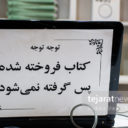 توجه توجه
کتاب فروخته شده
پس گرفته نمی‌شود
tejaratnews